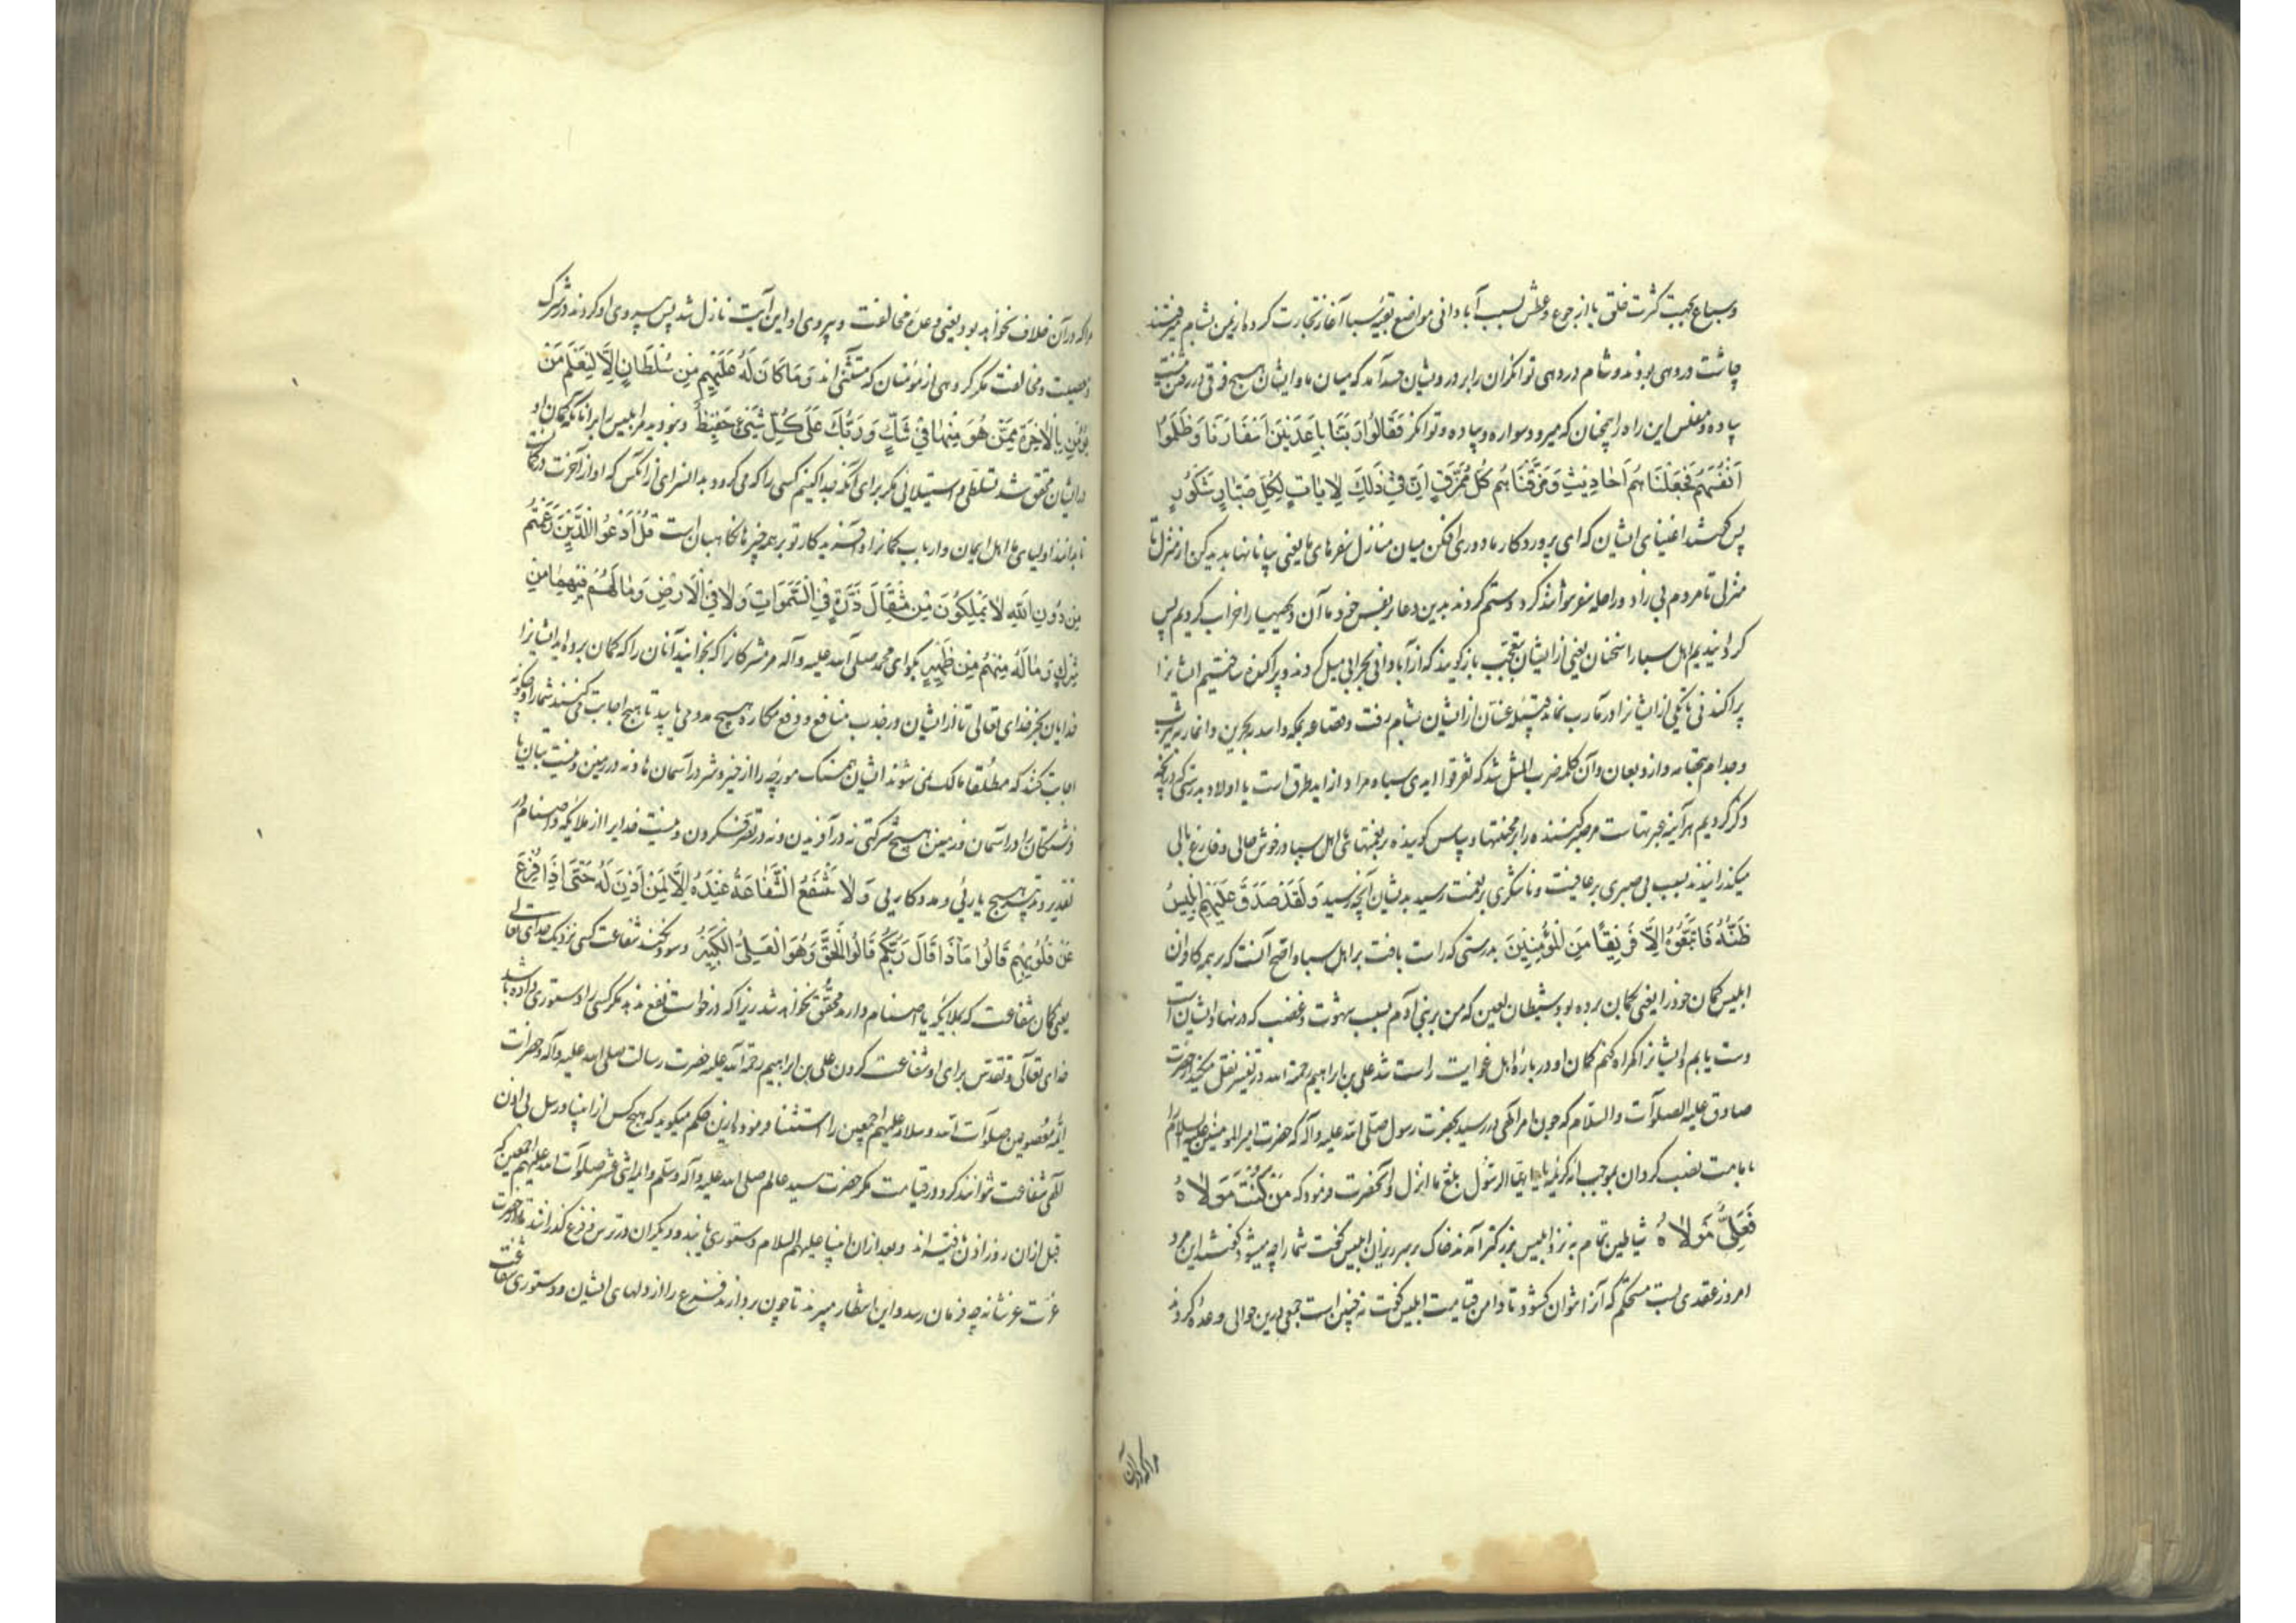 وسباع بجهت کثرت خلق یا از جوع و عطش بسبب آبادانی مواضع بقیهٔ سبا آغاز تجارت کرده از یمن بشام میرفتند
چاشت در دهی بودند و شام در دهی توانگران را بر درویشان حسد آمد که میان ما و ایشان هیچ فرقی در رفتن نیست
پیاده و مفلس این راه را همچنان که میرود سواره و پیاده و توانگر فَقَالُوا رَبَّنَا بَاعِدْ بَيْنَ اَسْفَارِنَا وَظَلَمُوا
اَنْفُسَهُمْ فَجَعَلْنَاهُمْ اَحَادِيثَ وَمَزَّقْنَاهُمْ كُلَّ مُمَزَّقٍ اِنَّ فِي ذَلِكَ لَايَاتٍ لِكُلِّ صَبَّارٍ شَكُورٍ
پس گفتند اغنیای ایشان که ای پروردگار ما دوری افکن میان منازل سفرهای ما یعنی بیابانها پدید کن از منزل تا
منزلی تا مردم بی زاد و راحله سفر نتوانند کرد و ستم کردند بدین دعا بر نفس خود ما آن دیهها را خراب کردیم پس
گردانیدیم اهل سبا را سخنان یعنی از ایشان بتعجب بازگویند که از آبادانی بخرابی میل کردند و پراکنده ساختیم ایشانرا
پراکندنی تا یکی از ایشانرا در مآرب نماند قبیلهٔ غسان از ایشان بشام رفت و قضاعه بمکه و اسد ببحرین و انمار بیثرب
و جذام بتهامه و ازد بعمان و آن کلمه ضرب المثل شد که تفرقوا ایدی سبا و مراد از اید طرق است یا اولاد بدرستی که در آنچه
ذکر کردیم هر آینه عبرتهاست مر صبر کننده را بر محنتها و سپاس گوینده بر نعمتهای اهل سبا در خوش حالی و فارغ بالی
میگذرانیدند بسبب بی صبری بر عافیت و ناشکری بر نعمت رسید بدیشان آنچه رسید وَلَقَدْ صَدَّقَ عَلَيْهِمْ اِبْلِيسُ
ظَنَّهُ فَاتَّبَعُوهُ اِلَّا فَرِيقًا مِنَ الْمُؤْمِنِينَ بدرستی که راست یافت بر اهل سبا و اصح آنست که بر همه کافران
ابلیس گمان خود را یعنی گمان برده بود شیطان لعین که من بر بنی آدم بسبب شهوت و غضب که در نهاد ایشان است
دست یابم و ایشانرا گمراه کنم گمان او دربارهٔ اهل غوایت راست شد علی بن ابراهیم رحمة الله در تفسیر نقل میکند از حضرت
صادق علیه الصلوات والسلام که چون امر الهی در رسید بحضرت رسول صلی الله علیه وآله که حضرت امیرالمومنین علیه السلام را
بامامت نصب گردان بموجب آیه کریمه یا ایها الرسول بلغ ما انزل و آنحضرت فرمود که مَنْ كُنْتُ مَوْلَاهُ
فَعَلِيٌّ مَوْلَاهُ شیاطین تمام به نزد ابلیس بزرگتر آمدند خاک بر سر ریزان ابلیس گفت شما را چه میشود گفتند این مرد
امروز عقدی بست مستحکم که آنرا نتوان گشود تا دامن قیامت ابلیس گفت نه چنین است جمعی بدین حوالی وعده کردند
مراکه در آن
مراکه در آن خلاف نخواهد بود یعنی وعدهٔ مخالفت و پیروی او این آیت نازل شد پس پیروی او کردند در شرک
و معصیت و مخالفت مگر گروهی از مؤمنان که مستثنی اند وَمَا كَانَ لَهُ عَلَيْهِمْ مِنْ سُلْطَانٍ اِلَّا لِنَعْلَمَ مَنْ
يُؤْمِنُ بِالْاٰخِرَةِ مِمَّنْ هُوَ مِنْهَا فِي شَكٍّ وَرَبُّكَ عَلَى كُلِّ شَيْءٍ حَفِيظٌ و نبود مر ابلیس را بر آنانکه گمان او
در ایشان محقق شد تسلطی و استیلائی مگر برای آنکه جدا کنیم کسی را که می گرود بدانسرای از آنکس که او از آخرت در شک است
تا بدانند اولیای ما اهل ایمان و ارباب گمانرا و آفریدگار تو بر همه چیزها نگاهبان است قُلْ اُدْعُوا الَّذِينَ زَعَمْتُمْ
مِنْ دُونِ اللهِ لَا يَمْلِكُونَ مِنْ مِثْقَالَ ذَرَّةٍ فِي السَّمَوَاتِ وَلَا فِي الْاَرْضِ وَمَا لَهُمْ فِيهِمَا مِنْ
شِرْكٍ وَمَا لَهُ مِنْهُمْ مِنْ ظَهِيرٍ بگو ای محمد صلی الله علیه وآله مر مشرکانرا که بخوانید آنان را که گمان برده اید ایشانرا
خدایان بجز خدای تعالی تا از ایشان در جذب منافع و دفع مکاره هیچ مددی یابید تا هیچ اجابت می کنند شما را و چگونه
اجابت کنند که مطلقا مالک نمی شوند ایشان همسنگ مورچه را از خیر و شر در آسمان ها و نه در زمین و نیست بتان یا
فرشتگان را در آسمان و زمین هیچ شرکتی نه در آفریدن و نه در تصرف کردن و نیست خدایرا از ملائکه و اصنام در
تقدیر و تدبیر هیچ یاریی و مددکاریی وَلَا تَنْفَعُ الشَّفَاعَةُ عِنْدَهُ اِلَّا لِمَنْ اَذِنَ لَهُ حَتَّى اِذَا فُزِّعَ
عَنْ قُلُوبِهِمْ قَالُوا مَاذَا قَالَ رَبُّكُمْ قَالُوا الْحَقَّ وَهُوَ الْعَلِيُّ الْكَبِيرُ و سود نکند شفاعت کسی نزدیک خدای تعالی
یعنی گمان شفاعت که بملائکه یا اصنام دارند محقق نخواهد شد زیرا که درخواست نفع ندهد مگر کسی را دستوری داده باشد
خدای تعالی و تقدس برای او شفاعت کردن علی بن ابراهیم رحمة الله علیه حضرت رسالت صلی الله علیه وآله و حضرات
ائمه معصومین صلوات الله وسلامه علیهم اجمعین را استثنا فرموده ازین حکم میگوید که هیچ کس از انبیا و رسل بی اذن
الهی شفاعت نتوانند کرد در قیامت مگر حضرت سید عالم صلی الله علیه وآله وسلم و ائمه اثنی عشر صلوات الله علیهم اجمعین که
قبل از آن روز اذن یافته اند و بعد از آن انبیا علیهم السلام دستوری یابند و دیگران در ترس و فزع گذرانند تا از حضرت
عزت عز شانه چه فرمان رسد و این انتظار میبرند تا چون بردارند فزع را از دلهای ایشان و دستوری شفاعت